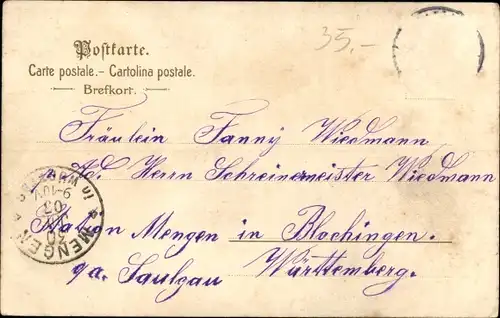 35.-
Postkarte.
Carte postale.- Cartolina postale.
Brefkort.
Fräulein Fanny Wiedmann
Ad. Herrn Schreinermeister Wiedmann
Station Mengen in Blochingen.
9a. Saulgau Württemberg.
MENGEN
30
03
9-10V.